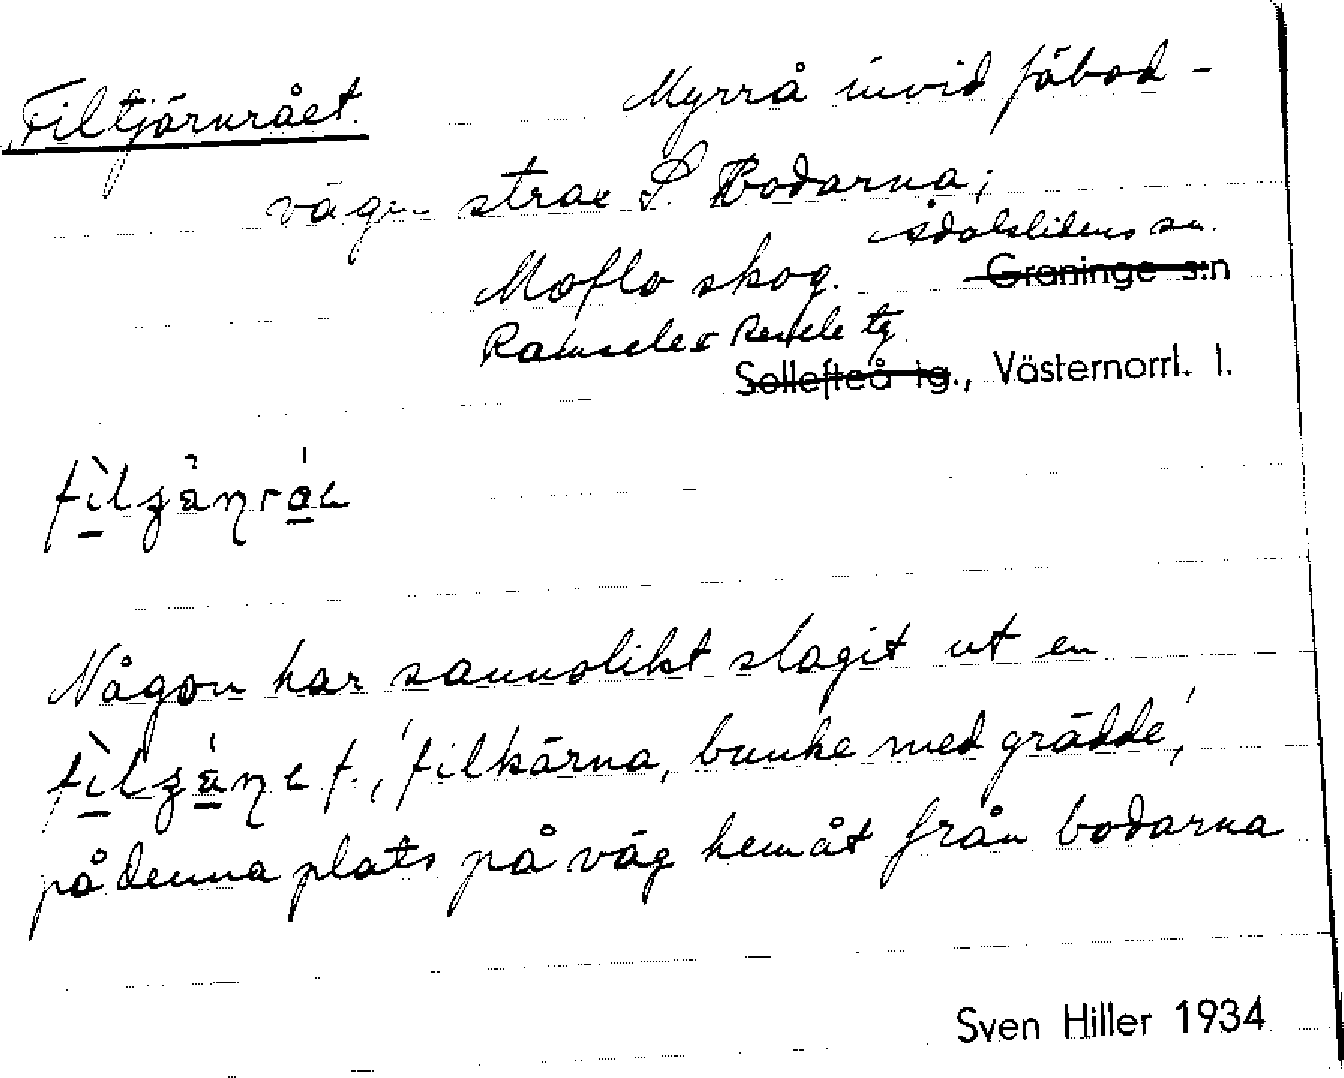 Filtjärnrået. Myrrå invid fäbod-
vägen strax S. Bodarna;
Ådalslidens sn.
Moflo skog. Graninge s:n
Ramsele o Resele tg
Sollefteå tg., Västernorrl. l.
Någon har sannolikt slagit ut en
f., 'filkärna, bunke med grädde,'
på denna plats på väg hemåt från bodarna
Sven Hiller 1934